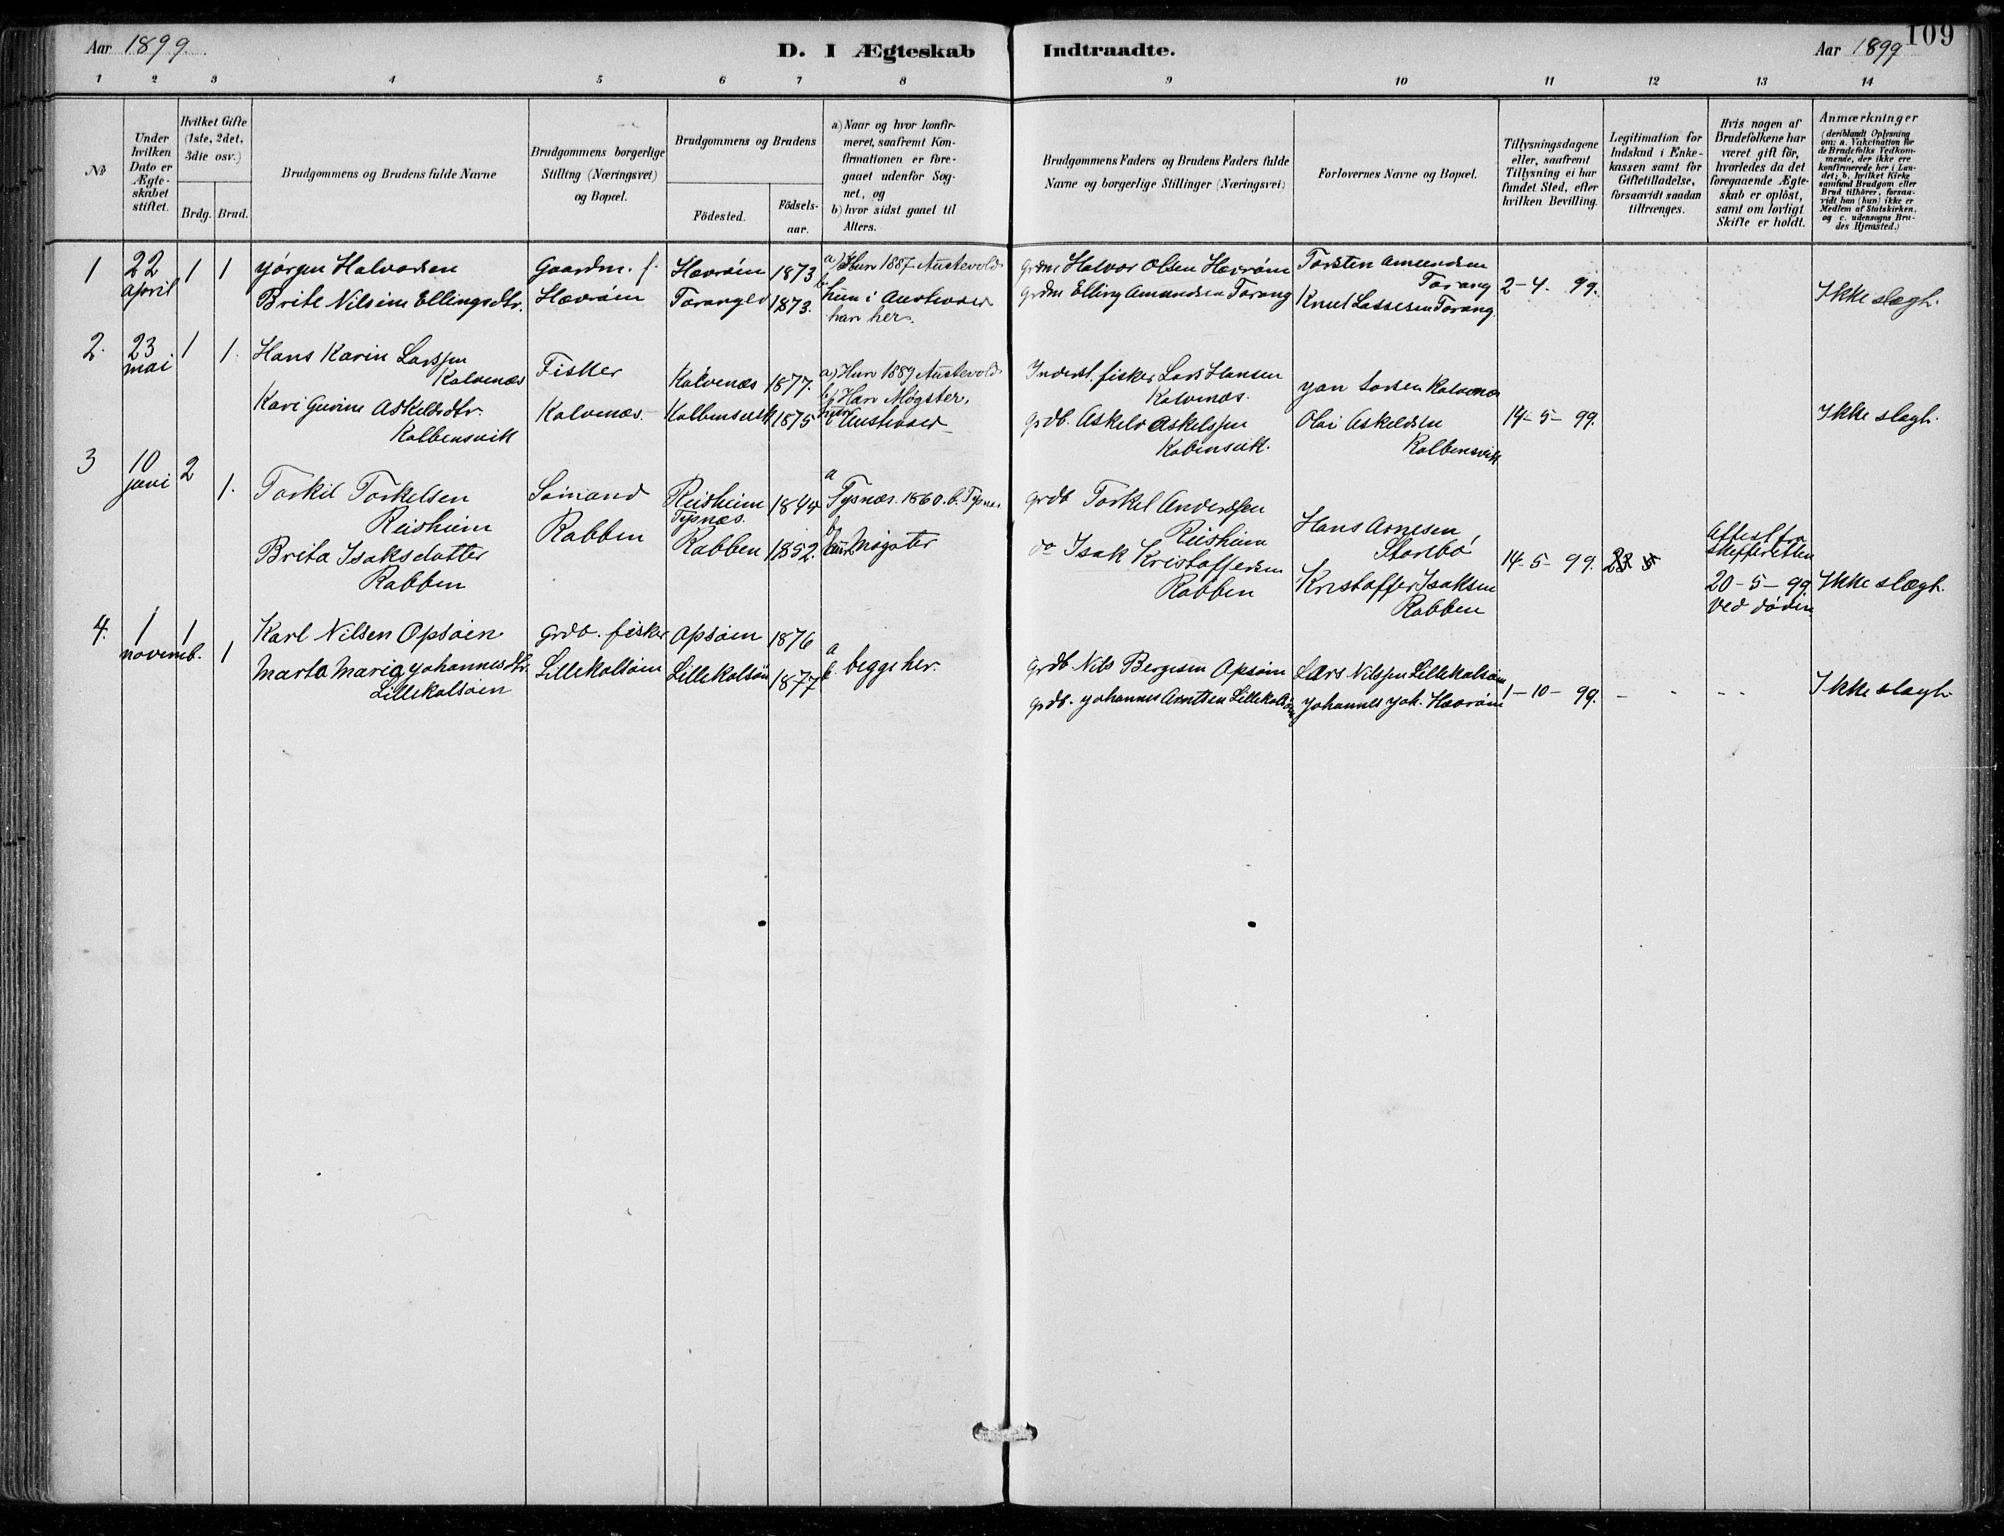 Aar 1899.
D. I Ægteskab Indtraadte.
Aar 1899
109
1 2 3 4 5 6 7 8 9 10 11 12 13 14
№
Under hvilken Dato er Ægteskabet stiftet.
Hvilket Gifte (1ste, 2det, 3die osv.)
Brdg. Brud.
Brudgommens og Brudens fulde Navne
Brudgommens borgerlige Stilling (Næringsvei) og Bopæl.
Brudgommens og Brudens
Födested.
Födselsaar.
a) Naar og hvor konfirmeret, saafremt Konfirmationen er foregaaet udenför Sognet, og
b) hvor sidst gaaet til Alters.
Brudgommens Faders og Brudens Faders fulde Navne og borgerlige Stillinger (Næringsvei)
Forlovernes Navne og Bopæl.
Tillysningsdagene eller, saafremt Tillysning ei har fundet Sted, efter hvilken Bevilling.
Legitimation for Indskud i Enkekassen samt for Giftetilladelse, forsaavidt saadan tiltrænges.
Hvis nogen af Brudefolkene har været gift för, hvorledes da det foregaaende Ægteskab er oplöst, samt om lovligt Skifte er holdt.
Anmærkninger
(deriblandt Oplysning om: a. Vakcination for de Brudefolks Vedkommende, der ikke ere konfirmerede her i Landet; b. hvilket Kirkesamfund Brudgom eller Brud tilhörer, forsaavidt han (hun) ikke er Medlem af Statskirken, og c. udensogns Brudes Hjemsted.)
1 22 april 1 1 Jørgen Halvorsen Gaardm. f. Hævröen 1873 a) Hun 1887 Austevold grdm Halvor Olsen Hævröen Torsten Amundsen Torang
Brite Nilsine Ellingsdtr. Hævröen 1873. hun i Austevold han her. grdm Elling Amundsen Torang Knud Lassesen Torang. 2-4. 99. Ikke slægt.
2. 23 mai 1 1. Hans Karin Larssen Kalvenæs Fisker Kalvenæs 1877. a) Hun 1889 Austevold b) Han Møgster, fisker Lars Hansen Kalvenæs. Kalvenæs
Kari Askelsdtr. Kolbensvik Kalvenæs. Kolbensvik 1875 hun Austevold grdb. Askeld Askelssen Olai Askeldsen Kolbensvik 14-5-99. Ikke slægt.
3 10 juni 2 1. Torkil Torkelsen Reisheim Sömand Reisheim Tysnæs. 1844 a Tysnæs. 1860. b. grdb Torkel Anderssen Reisheim Hans Arnesen Storebö
Brita Isaksdatter Rabben Rabben Rabben 1852. Møgster do Isak Kristoffersen Rabben Kristoffer Isaksen Rabben 14-5-99. Attest fra skifteretten 20-5-99. Ved döden Ikke slægt.
4. 1 novemb. 1 1 Karl Nilsen Opsöen grdb. fisker Opsöen 1876 a grdb Nils Bergesen Opsöen Lars Nilssen Lillekalsöen
Marta Maria Johannesdtr. Lillekalsöen Lillekalsöen Lillekalsöen 1877 b. begge her. grdb. Johannes Arntsen Lillekalsöen Johannes Joh. Hævröen 1-10-99. - - - - Ikke slægt.